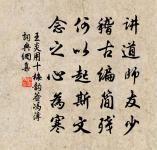 讲道师友少
稽古编简残
何以起斯文
念之心为寒
王炎用十梅韵答冯簿
词典网集